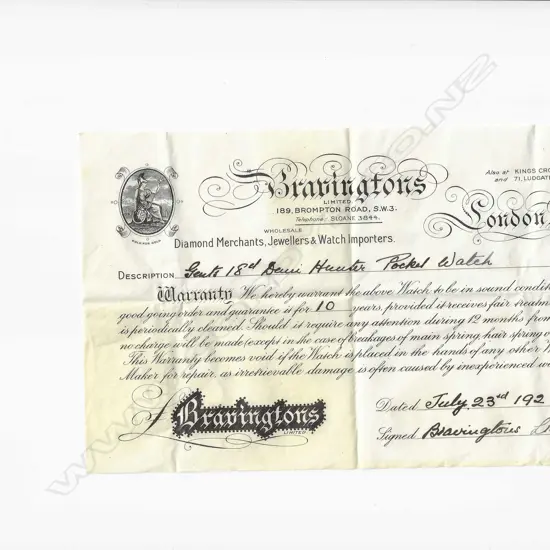 Bravingtons
LIMITED
189, BROMPTON ROAD, S.W.3.
Telephone: SLOANE 3844.
Also at KINGS CRO
and 71, LUDGATE
London,
WHOLESALE
Diamond Merchants, Jewellers & Watch Importers.
DESCRIPTION Gents 18ct Demi Hunter Pocket Watch
Warranty We hereby warrant the above Watch to be in sound condit
good going order and guarantee it for 10 years, provided it receives fair treatm
is periodically cleaned. Should it require any attention during 12 months from
no charge will be made (except in the case of breakages of main spring hair spring o
This Warranty becomes void if the Watch is placed in the hands of any other
Maker for repair, as irretrievable damage is often caused by inexperienced wo
Dated July 23rd 192
Bravingtons
LIMITED
Signed Bravingtons